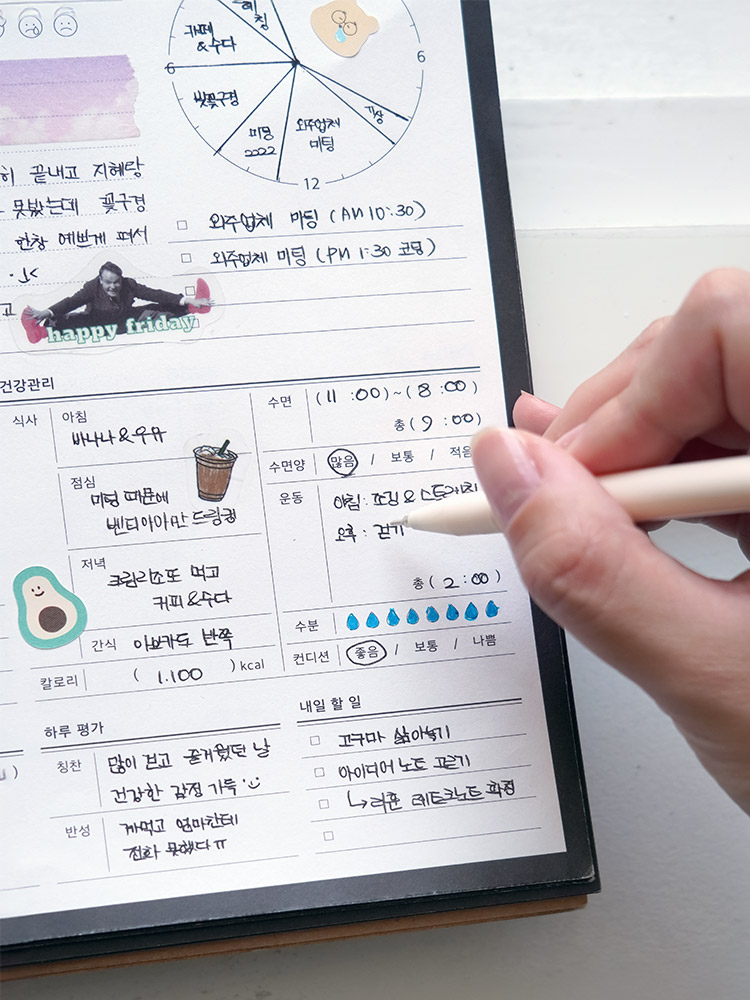 취침
카페
&수다
6
6
벚꽃구경
미팅
2022
외주업체
미팅
기상
12
히 끝내고 지혜랑
못봤는데 꽃구경
한창 예쁘게 펴서
고
외주업체 미팅 (AM 10:30)
외주업체 미팅 (PM 1:30 코딩)
happy friday
건강관리
식사
아침
바나나&우유
점심
미팅 때문에
벤티아아만 드링킹
저녁
크림리조또 먹고
커피&수다
간식 아보카도 반쪽
칼로리 ( 1.100 )kcal
수면 (11 :00)~(8 :00)
총 (9 :00)
수면양 많음 / 보통 / 적음
운동 아침: 조깅&스트레칭
오후 : 걷기
총 ( 2 :00)
수분
컨디션 좋음 / 보통 / 나쁨
하루 평가
칭찬 많이 걷고 즐거웠던 날
건강한 감정 가득
반성 까먹고 엄마한테
전화 못했다ㅠ
내일 할 일
고구마 삶아놓기
아이디어 노트 고르기